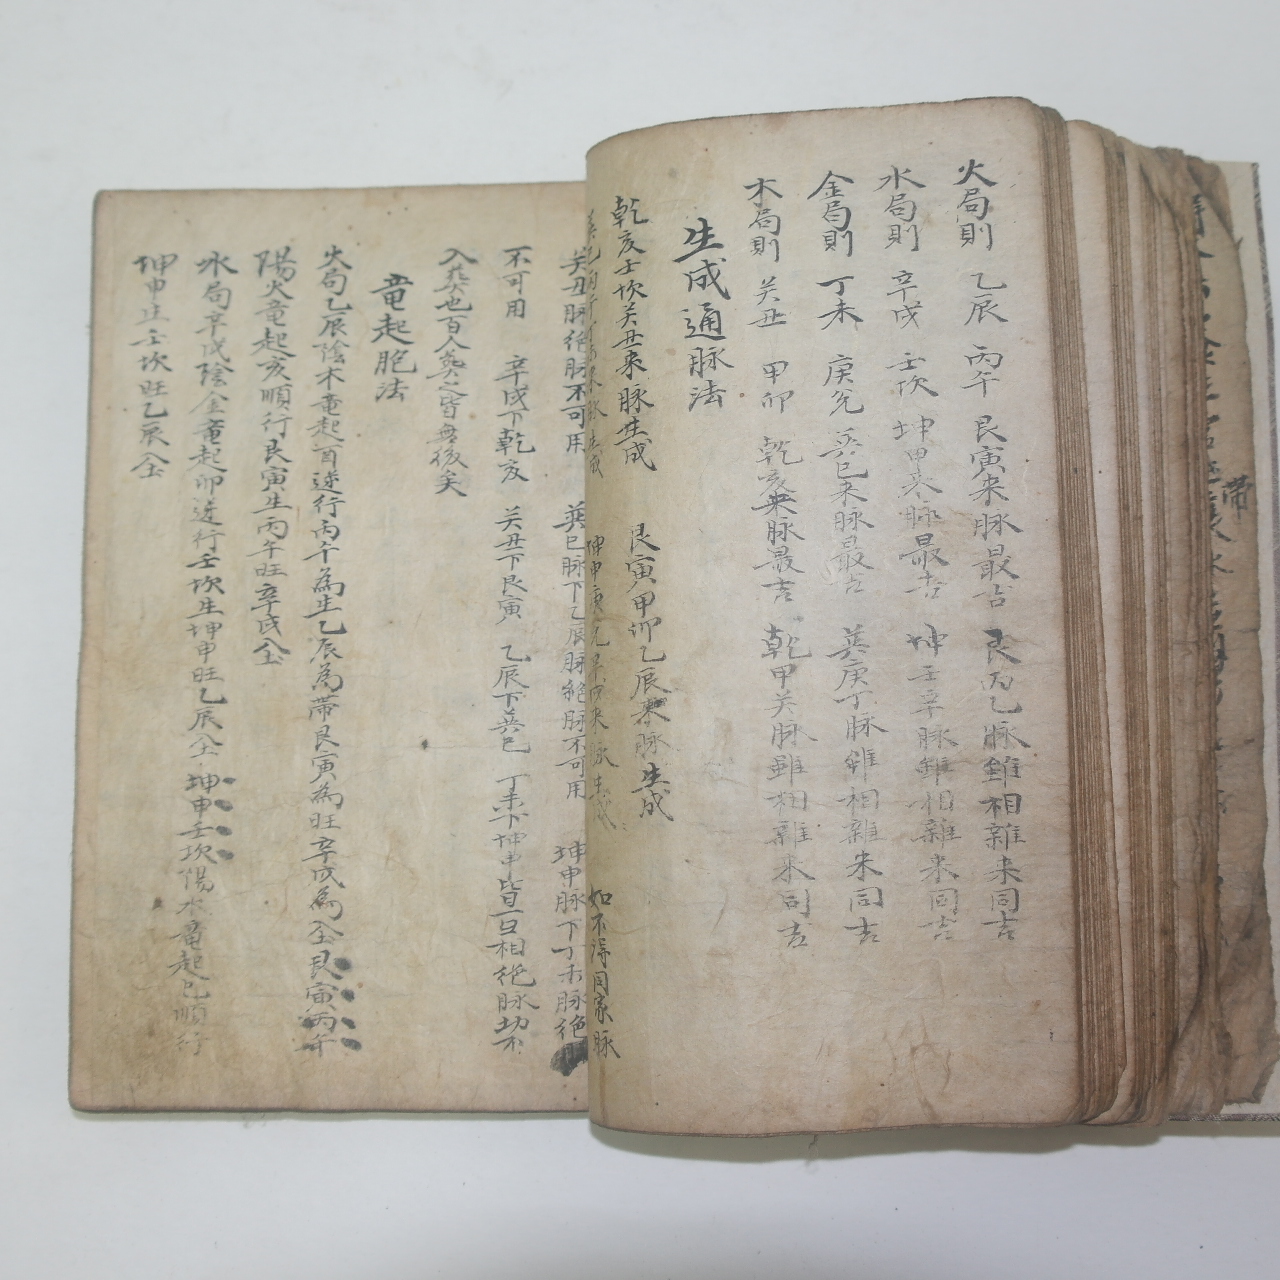 火局則 乙辰 丙午 艮寅来脉最吉 艮丙乙脉雖相雜来同吉
水局則 辛戌 壬坎 坤申来脉最吉 坤壬辛脉雖相雜来同吉
金局則 丁未 庚兌 巽巳来脉最吉 巽庚丁脉雖相雜来同吉
木局則 癸丑 甲卯 乾亥来脉最吉 乾甲癸脉雖相雜来同吉
生成通脉法
乾亥壬坎癸丑来脉生成 艮寅甲卯乙辰来脉生成
坤申庚兌辛戌来脉生成 如不得同家脉
癸丑脉絶脉不可用 巽巳脉下乙辰脉絶脉不可用 坤申脉下丁未脉絶
不可用 辛戌下乾亥 癸丑下艮寅 乙辰下巽巳 丁未下坤申皆曰相絶脉切不
入葬也百人葬之皆無後矣
竜起胞法
火局乙辰陰木竜起酉逆行丙午為生乙辰為帶艮寅為旺辛戌為仝艮寅丙午
陽火竜起亥順行艮寅生丙午旺辛戌仝
水局辛戌陰金竜起卯逆行壬坎生坤申旺乙辰仝坤申壬坎陽水竜起巳順行
坤申生壬坎旺乙辰仝